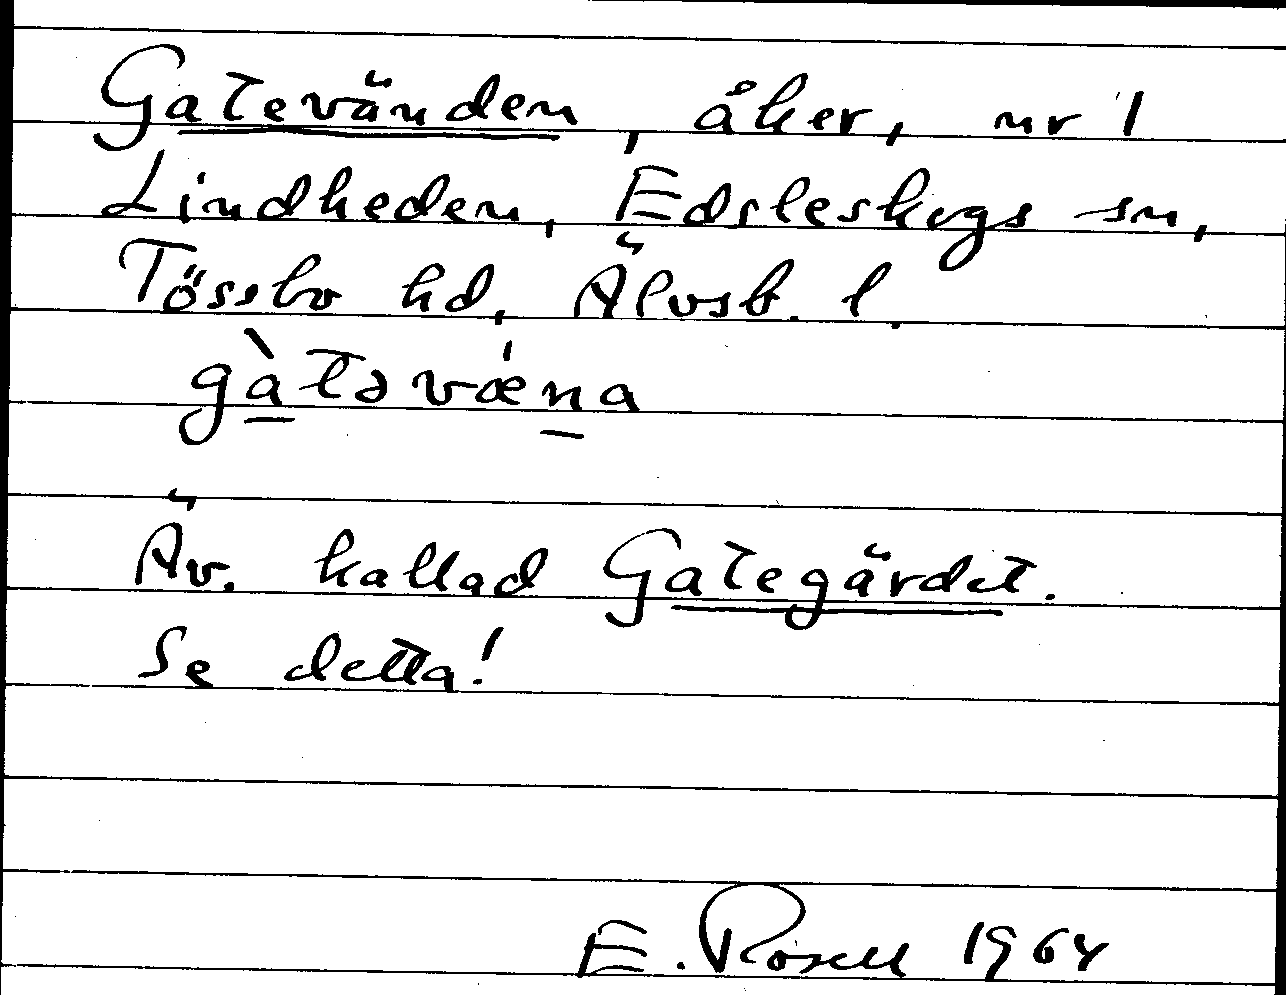 Gatevänden, åker, nr 1
Lindheden, Edsleskogs sn,
Tössbo hd, Älvsb. l.
gàtəvǽna
Äv. kallad Gategärdet.
Se detta!
E. Rosell 1964